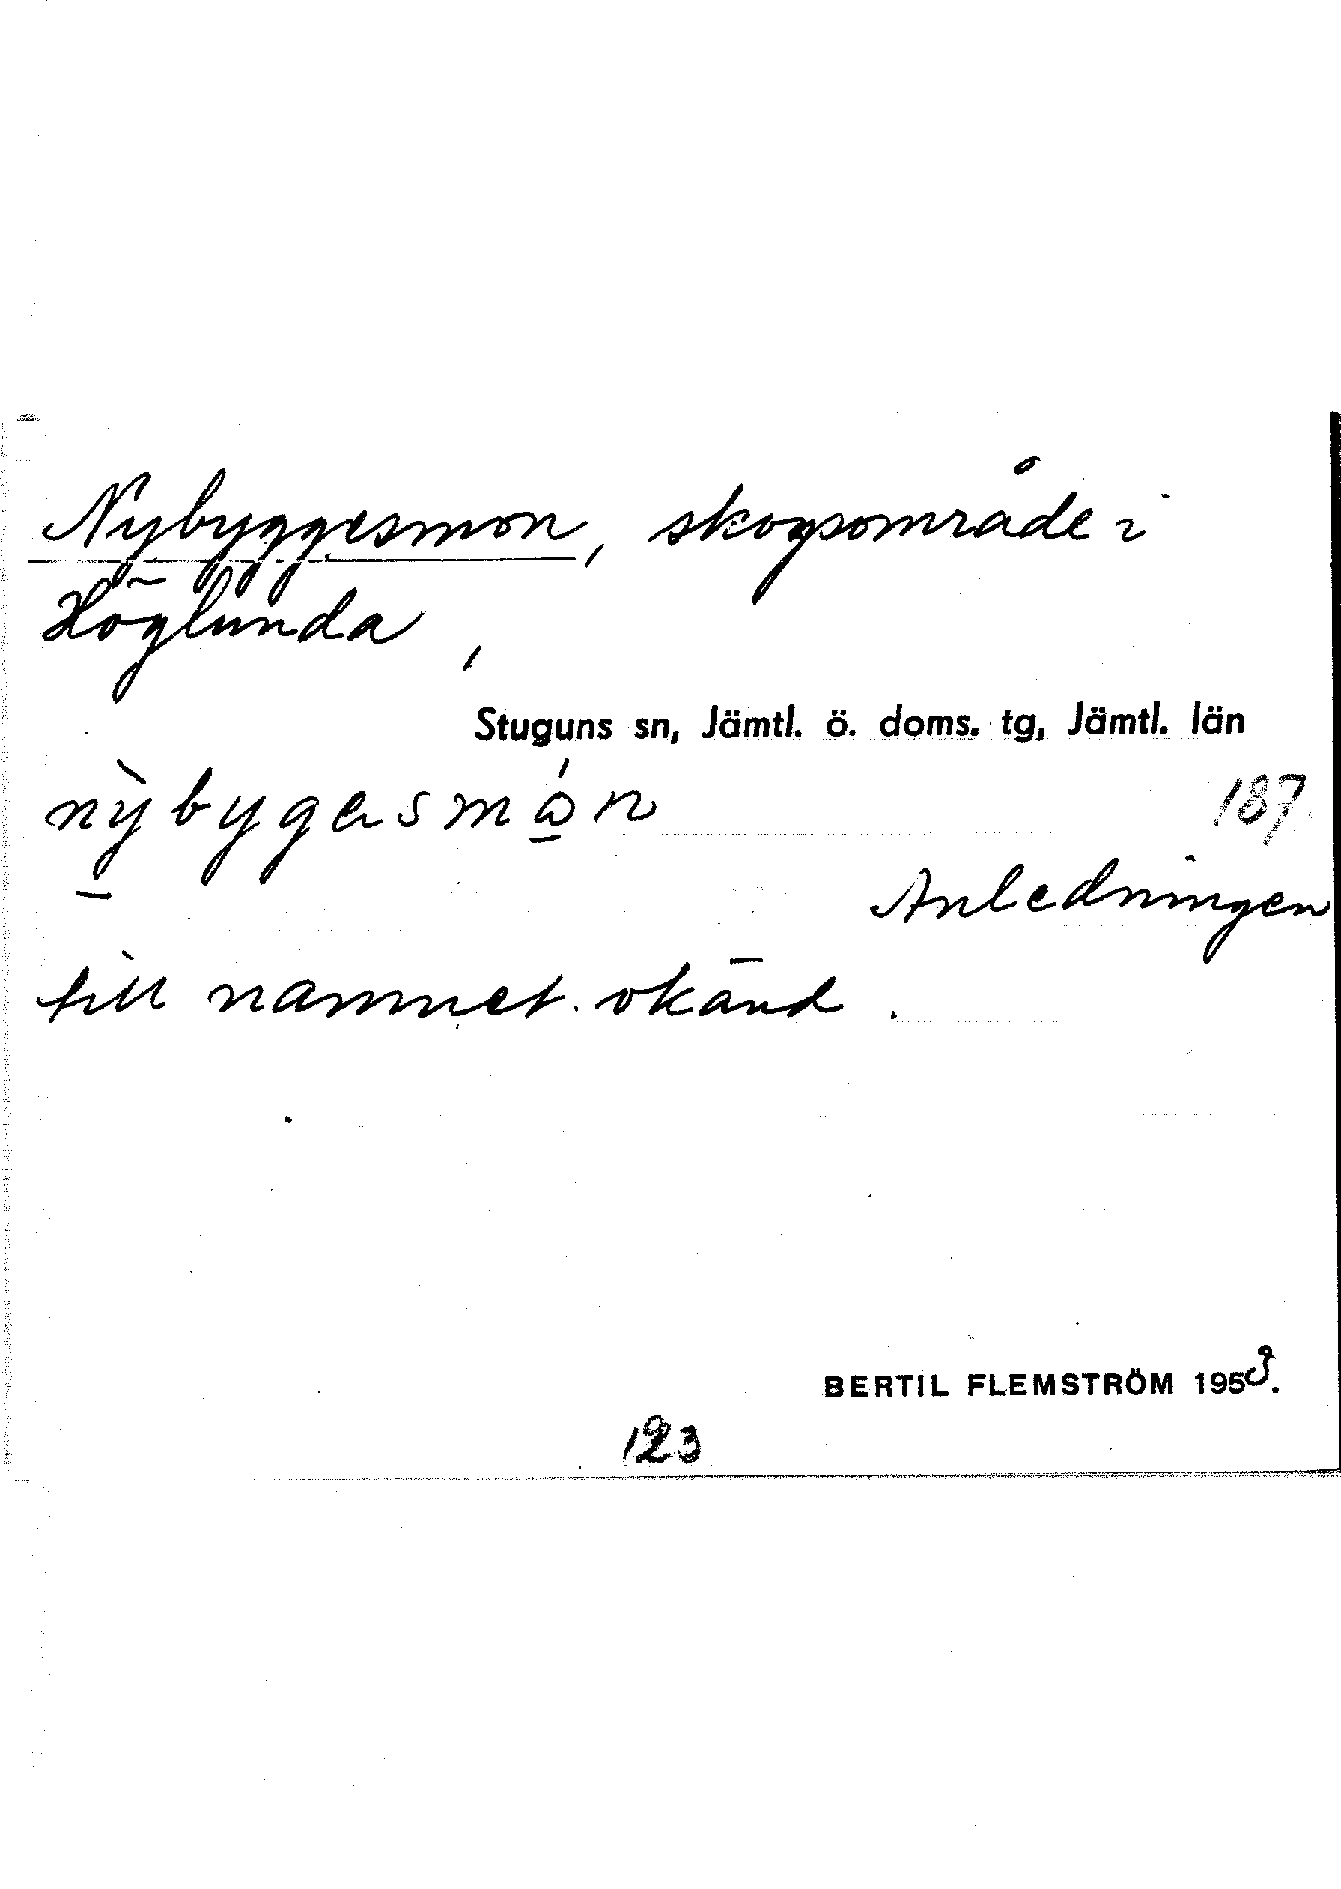 Nybyggesmon, skogsområde i
Höglunda,
Stuguns sn, Jämtl. ö. doms. tg, Jämtl. län
nỳbygesmó̠n 187
Anledningen
till namnet okänd.
BERTIL FLEMSTRÖM 1953.
123